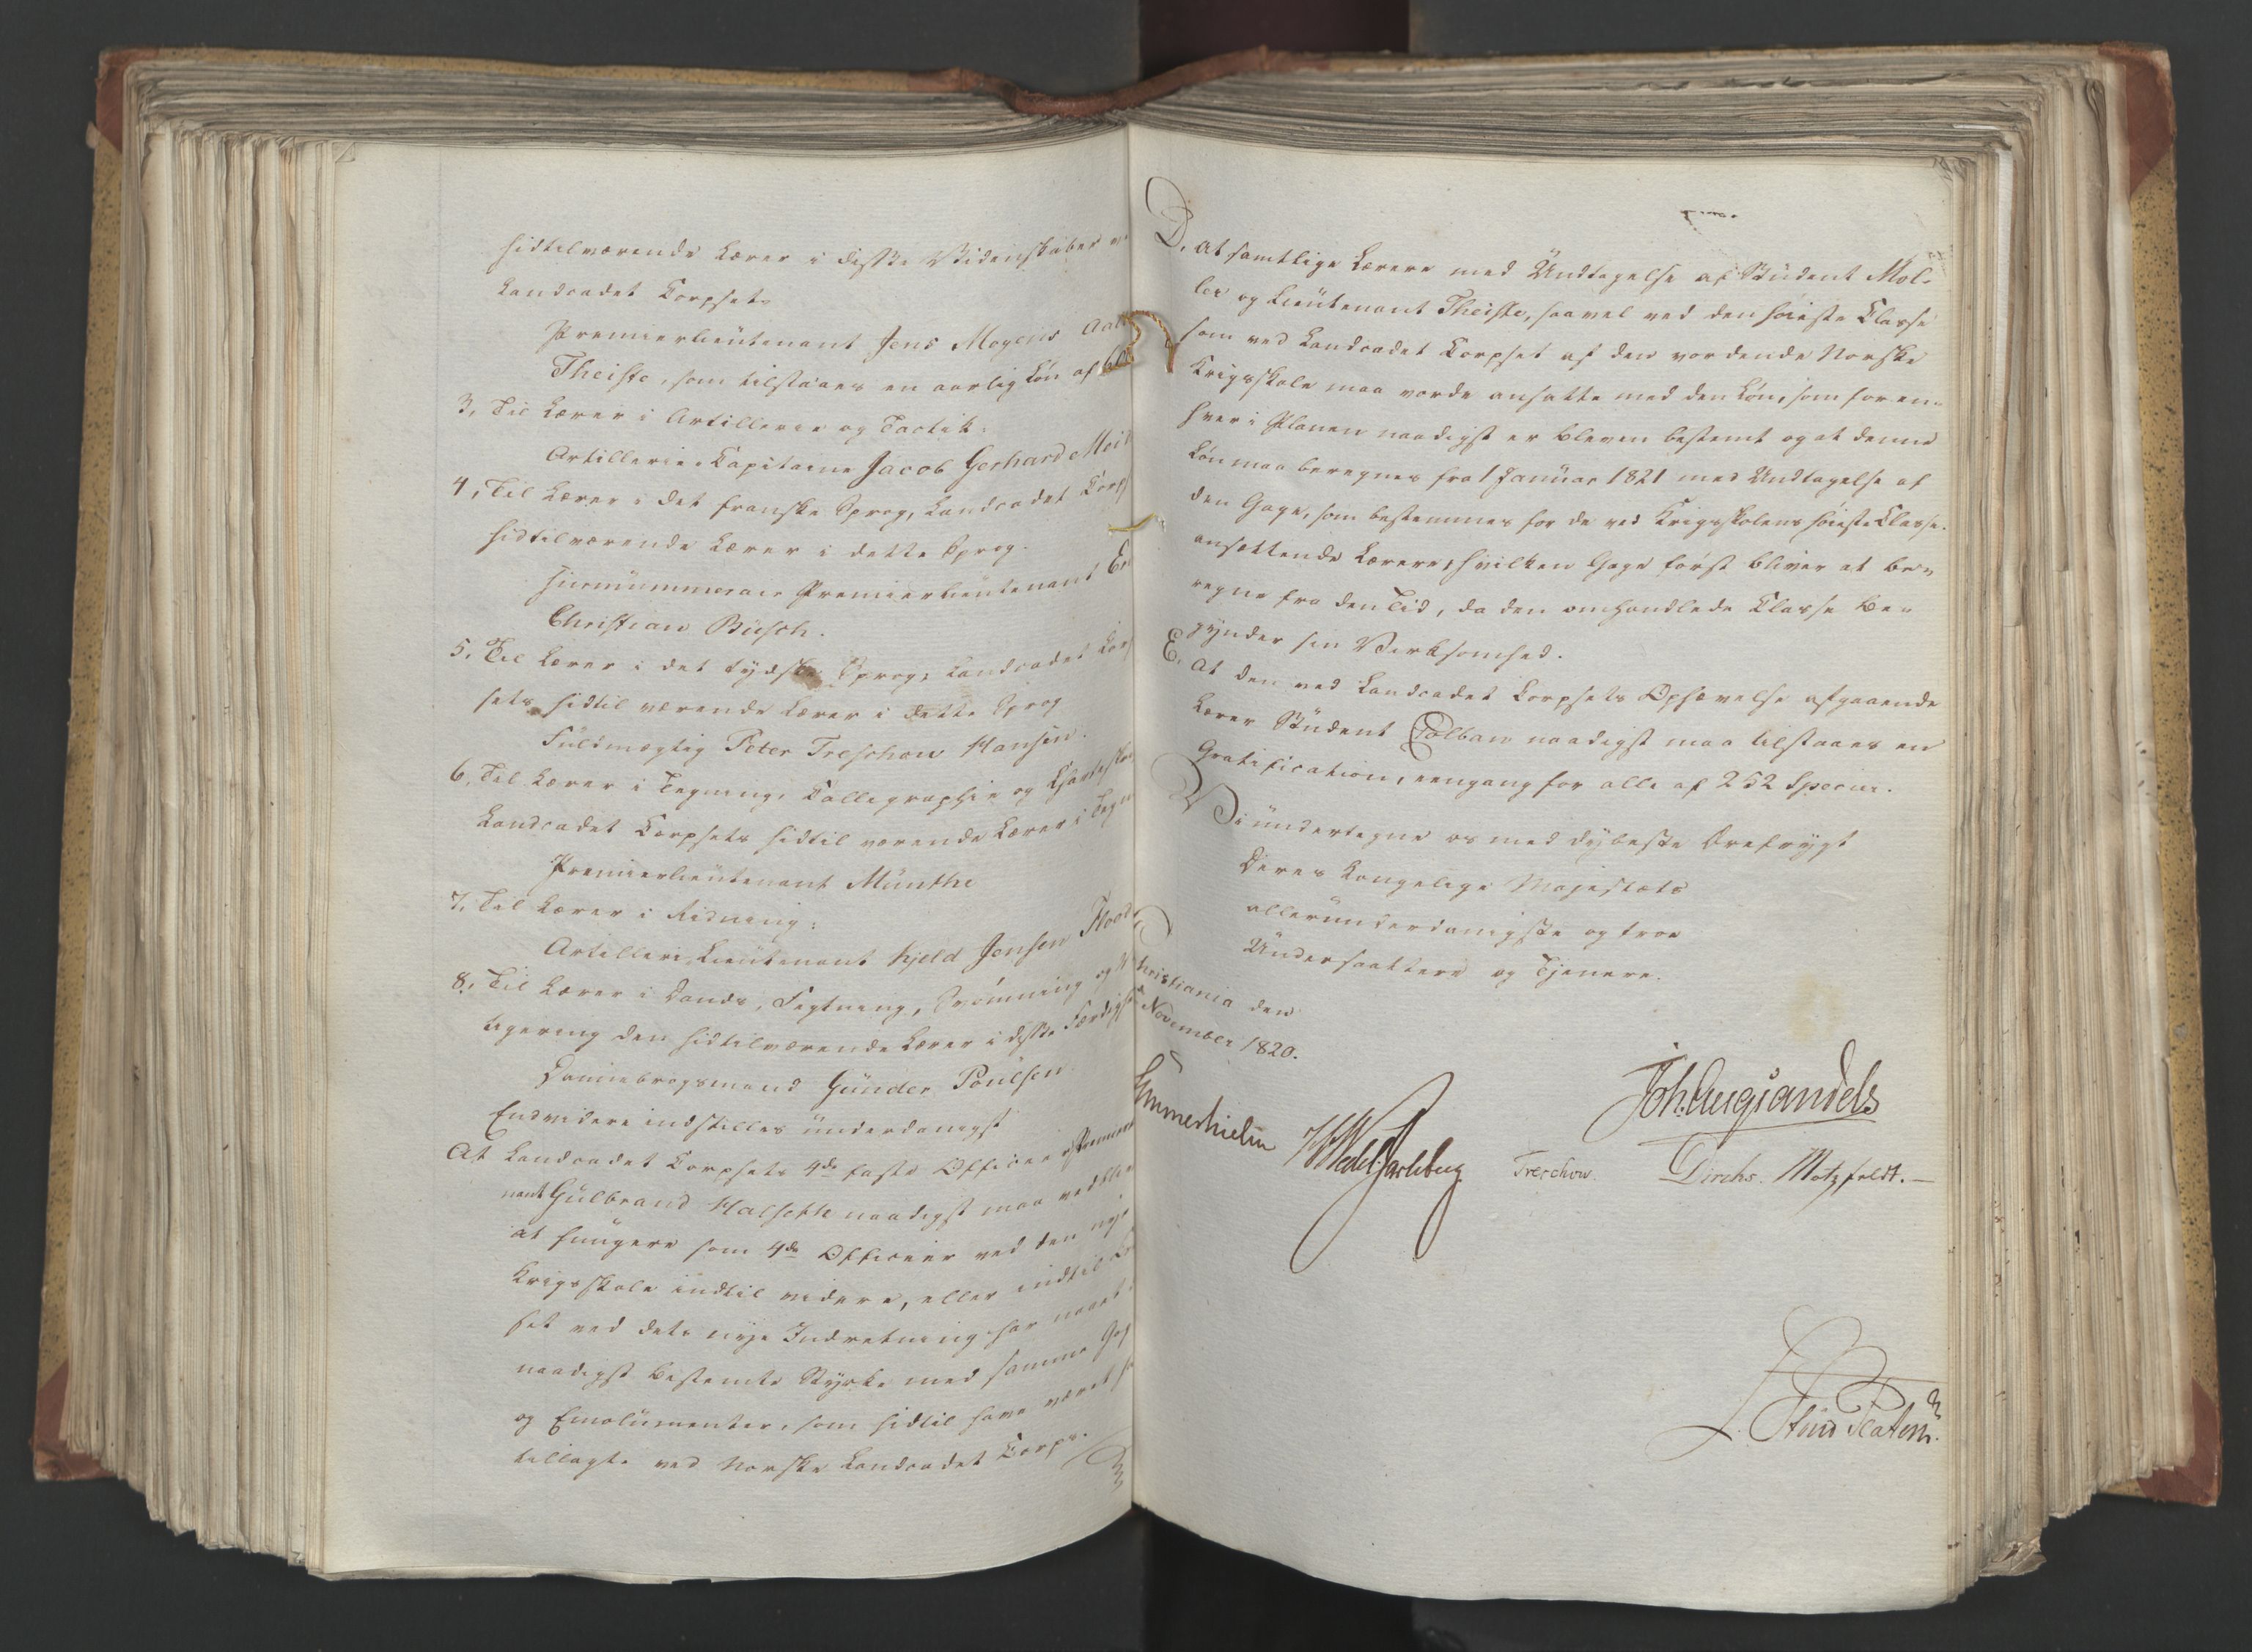 hidtilværende Lærer i disse Videnskaber v
Landcadet Corpset
Premierlieutenant Jens Mogens Aab
Theiste, som tilstaaes en aarlig Løn af
3, Til Lærer i Artillerie og Tactik:
Artillerie-Capitaine Jacob Gerhard Meid
4, Til Lærer i det franske Sprog, Landcadet Corps
hidtilværende Lærer i dette Sprog.
surnummerair Premierlieutenant
Christian Büsch.
5. Til Lærer i det tydske Sprog, Landcadet Corp
sets hidtil værende Lærer i dette Sprog
Fuldmægtig Peter Treschow Hansen.
6. Til Lærer i Tegning, Calligraphie og
Landcadet Corpsets hidtil værende Lærer i Tegn
Premierlieutenant Münthe
7. Til Lærer i Ridning:
Artilleri Lieutenant Kjeld Jensen Flood
8. Til Lærer i Dands, Fegtning, Svømning og
tigering den hidtilværende Lærer i disse Færdigh
Dannebrogsmand Günder Poülsen
Endvidere indstilles underdanigst
At Landcadet Corpsets 4de faste Officeer Premier
nant Gulbrand Halseth naadigst maa vedbli
at fungere som 4de Officeer ved den nye
Krigsskole indtil videre, eller indtil
set ved dets nye Indretning har naaet
naadigst bestemte Styrke med samme Gag
og Emolumenter, som hidtil have været
tillagt ved Norske Landcadet Corps.
D, at samtlige Lærere med Undtagelse af Student Møl-
ler og Lieutenant Theiste, saavel ved den høieste Classe
som ved Landcadet Corpset af den vordende Norske
Krigsskole maa vorde ansatte med den Løn, som for en-
hver i Planen naadigst er bleven bestemt og at denne
Løn maa beregnes fra 1 Januar 1821 med Undtagelse af
den Gage, som bestemmes for de ved Krigsskolens høieste Classe
ansættende Lærere, hvilken Gage først bliver at be-
regne fra den Tid, da den omhandlede Classe be-
gynder sin Virksomhed.
E. At den ved Landcadet Corpsets Ophævelse afgaaende
Lærer Student Colban naadigst maa tilstaaes en
Gratification, eengang for alle af 252 Specier.
Vi undertegne os med dybeste Ærefrygt
Deres Kongelige Majestæts
allerunderdanigste og troe
Undersaattere og Tjenere.
Christiania den
November 1820.
Joh. Aug Sandels
Hummerhielm HWedel Jarlsberg Treschow. Diriks. Motzfeldt.